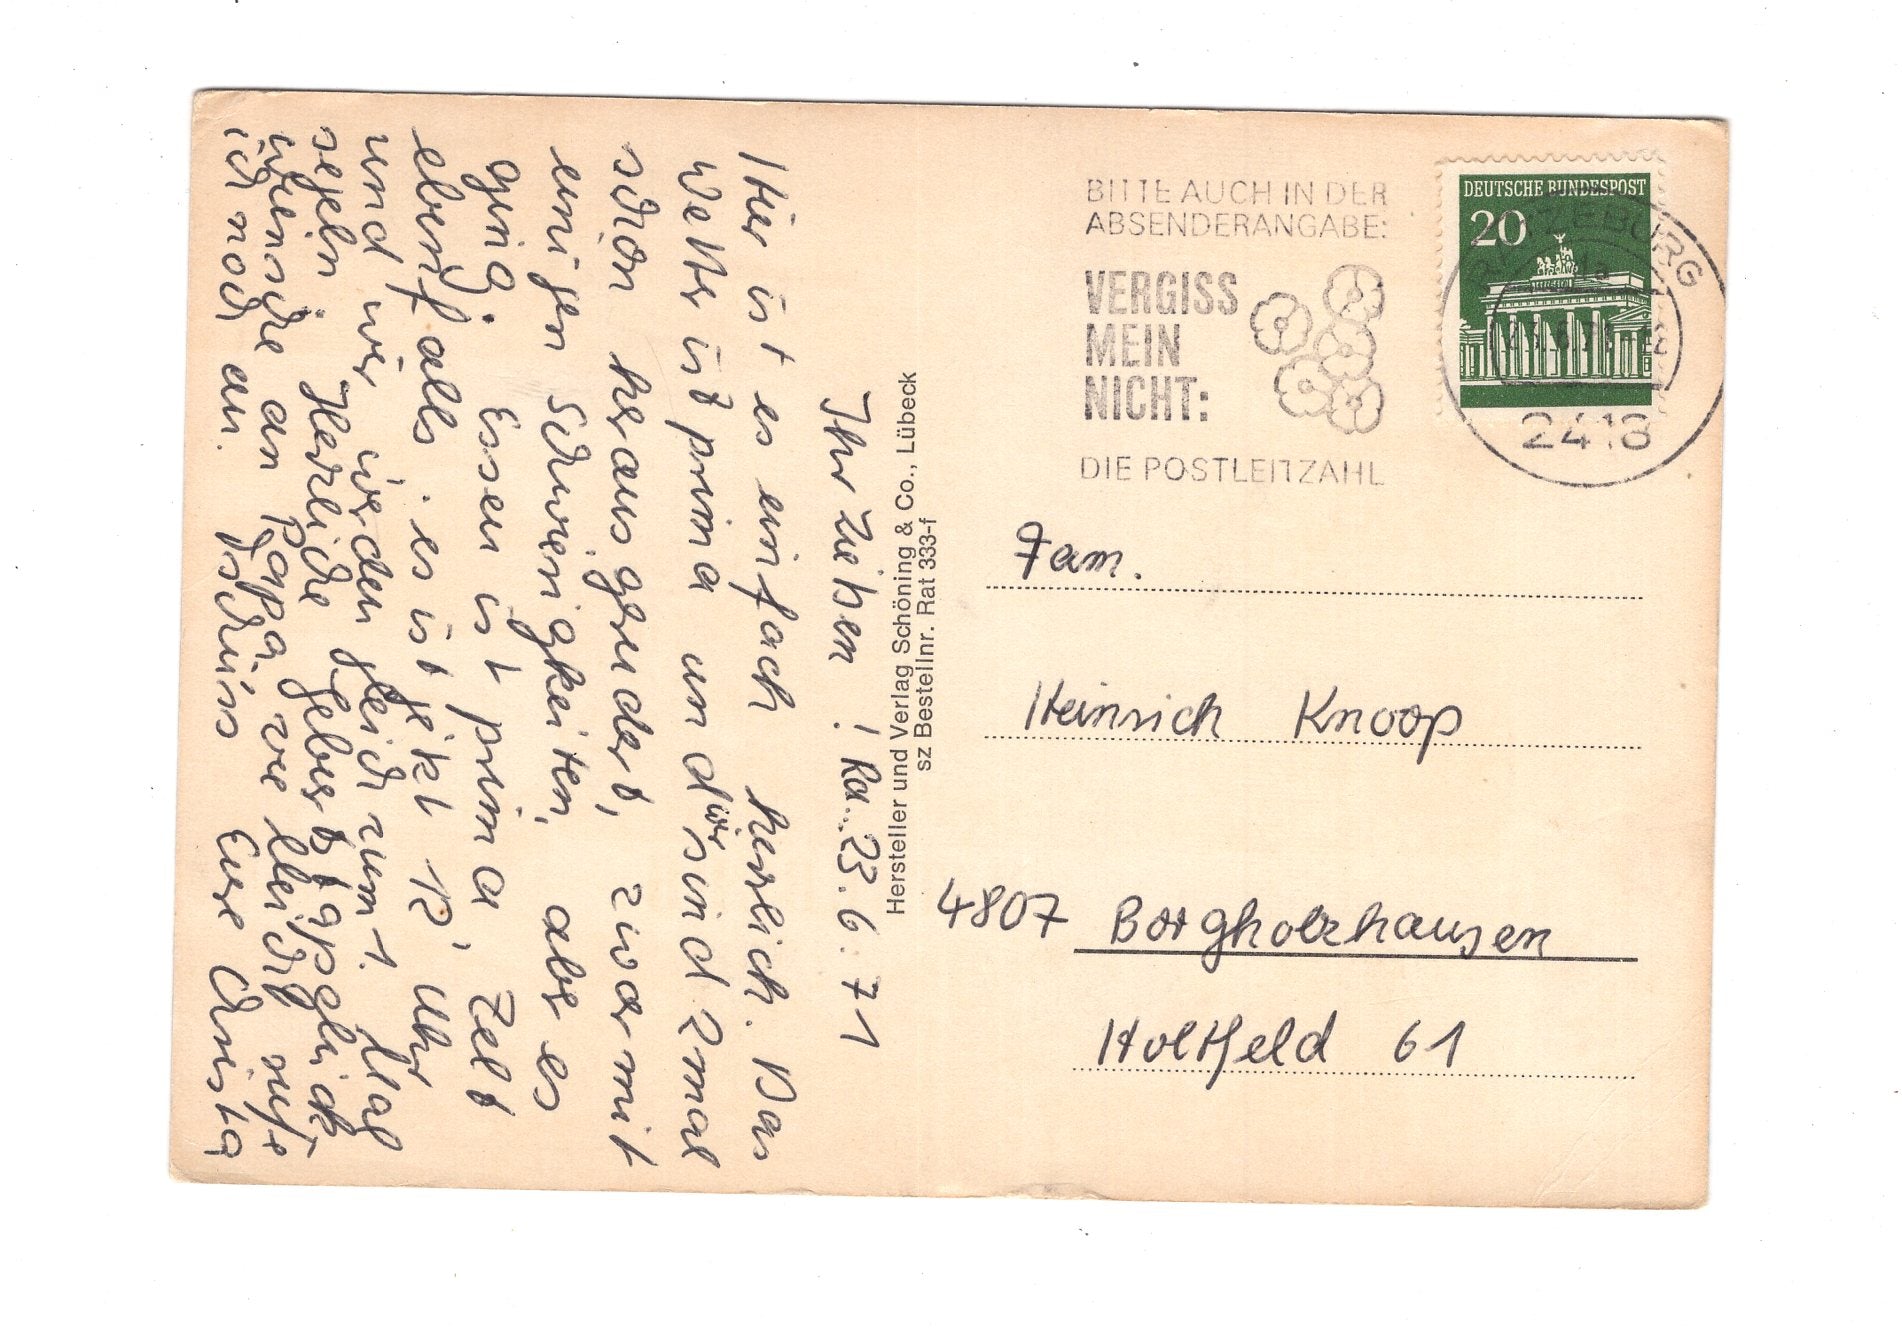 Ihr Lieben! Ra. 23.6.71
Hier ist es einfach herrlich. Das
Wetter ist prima und wir sind 2mal
schon herausgerudert, zwar mit
einigen Schwierigkeiten, aber es
ging. Essen ist prima Zelt
ebenfalls. es ist jetzt 12 Uhr
und wir werden gleich zum 1. Mal
segeln. Herzliche Geburtstagsglück-
wünsche an Papa, wie
ich noch an. Tschüss Eure Christa
Hersteller und Verlag Schöning & Co., Lübeck
sz Bestellnr. Rat 333-f
BITTE AUCH IN DER
ABSENDERANGABE:
VERGISS
MEIN
NICHT:
DIE POSTLEITZAHL
DEUTSCHE BUNDESPOST
20
RATZEBURG
1a
23.6.71-12
2418
Fam.
Heinrich Knoop
4807 Borgholzhausen
Holtfeld 61